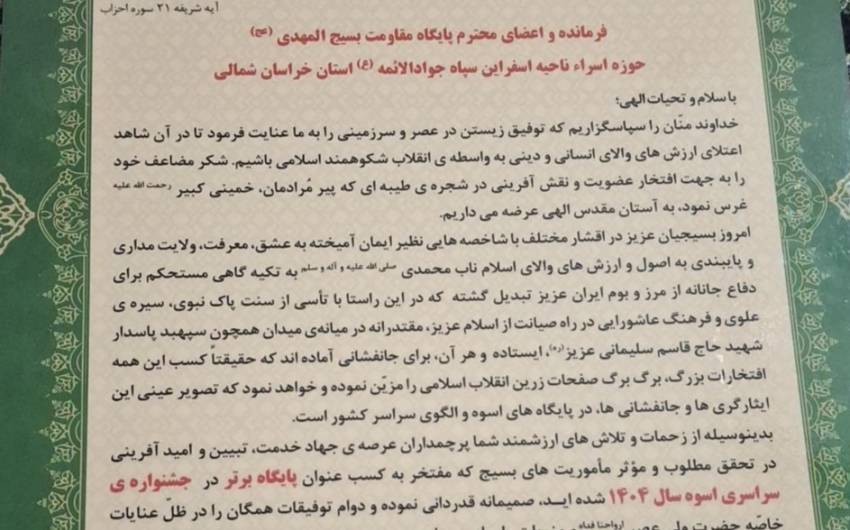 آیه شریفه ۲۱ سوره احزاب
فرمانده و اعضای محترم پایگاه مقاومت بسیج المهدی (عج)
حوزه اسراء ناحیه اسفراین سپاه جوادالائمه (ع) استان خراسان شمالی
با سلام و تحیات الهی؛
خداوند منّان را سپاسگزاریم که توفیق زیستن در عصر و سرزمینی را به ما عنایت فرمود تا در آن شاهد
اعتلای ارزش های والای انسانی و دینی به واسطه ی انقلاب شکوهمند اسلامی باشیم. شکر مضاعف خود
را به جهت افتخار عضویت و نقش آفرینی در شجره ی طیبه ای که پیر مُرادمان، خمینی کبیر رحمت الله علیه
غرس نمود، به آستان مقدس الهی عرضه می داریم.
امروز بسیجیان عزیز در اقشار مختلف با شاخصه هایی نظیر ایمان آمیخته به عشق، معرفت، ولایت مداری
و پایبندی به اصول و ارزش های والای اسلام ناب محمدی صلی الله علیه و آله و سلم به تکیه گاهی مستحکم برای
دفاع جانانه از مرز و بوم ایران عزیز تبدیل گشته که در این راستا با تأسی از سنت پاک نبوی، سیره ی
علوی و فرهنگ عاشورایی در راه صیانت از اسلام عزیز، مقتدرانه در میانه‌ی میدان همچون سپهبد پاسدار
شهید حاج قاسم سلیمانی عزیز(ره)، ایستاده و هر آن، برای جانفشانی آماده اند که حقیقتاً کسب این همه
افتخارات بزرگ، برگ برگ صفحات زرین انقلاب اسلامی را مزیّن نموده و خواهد نمود که تصویر عینی این
ایثارگری ها و جانفشانی ها، در پایگاه های اسوه و الگوی سراسر کشور است.
بدینوسیله از زحمات و تلاش های ارزشمند شما پرچمداران عرصه ی جهاد خدمت، تبیین و امید آفرینی
در تحقق مطلوب و مؤثر مأموریت های بسیج که مفتخر به کسب عنوان پایگاه برتر در جشنواره ی
سراسری اسوه سال ۱۴۰۴ شده ایـد، صمیمانه قدردانی نموده و دوام توفیقات همگان را در ظلّ عنایات
خاصّه حضرت ولی عصر ارواحنا فداه